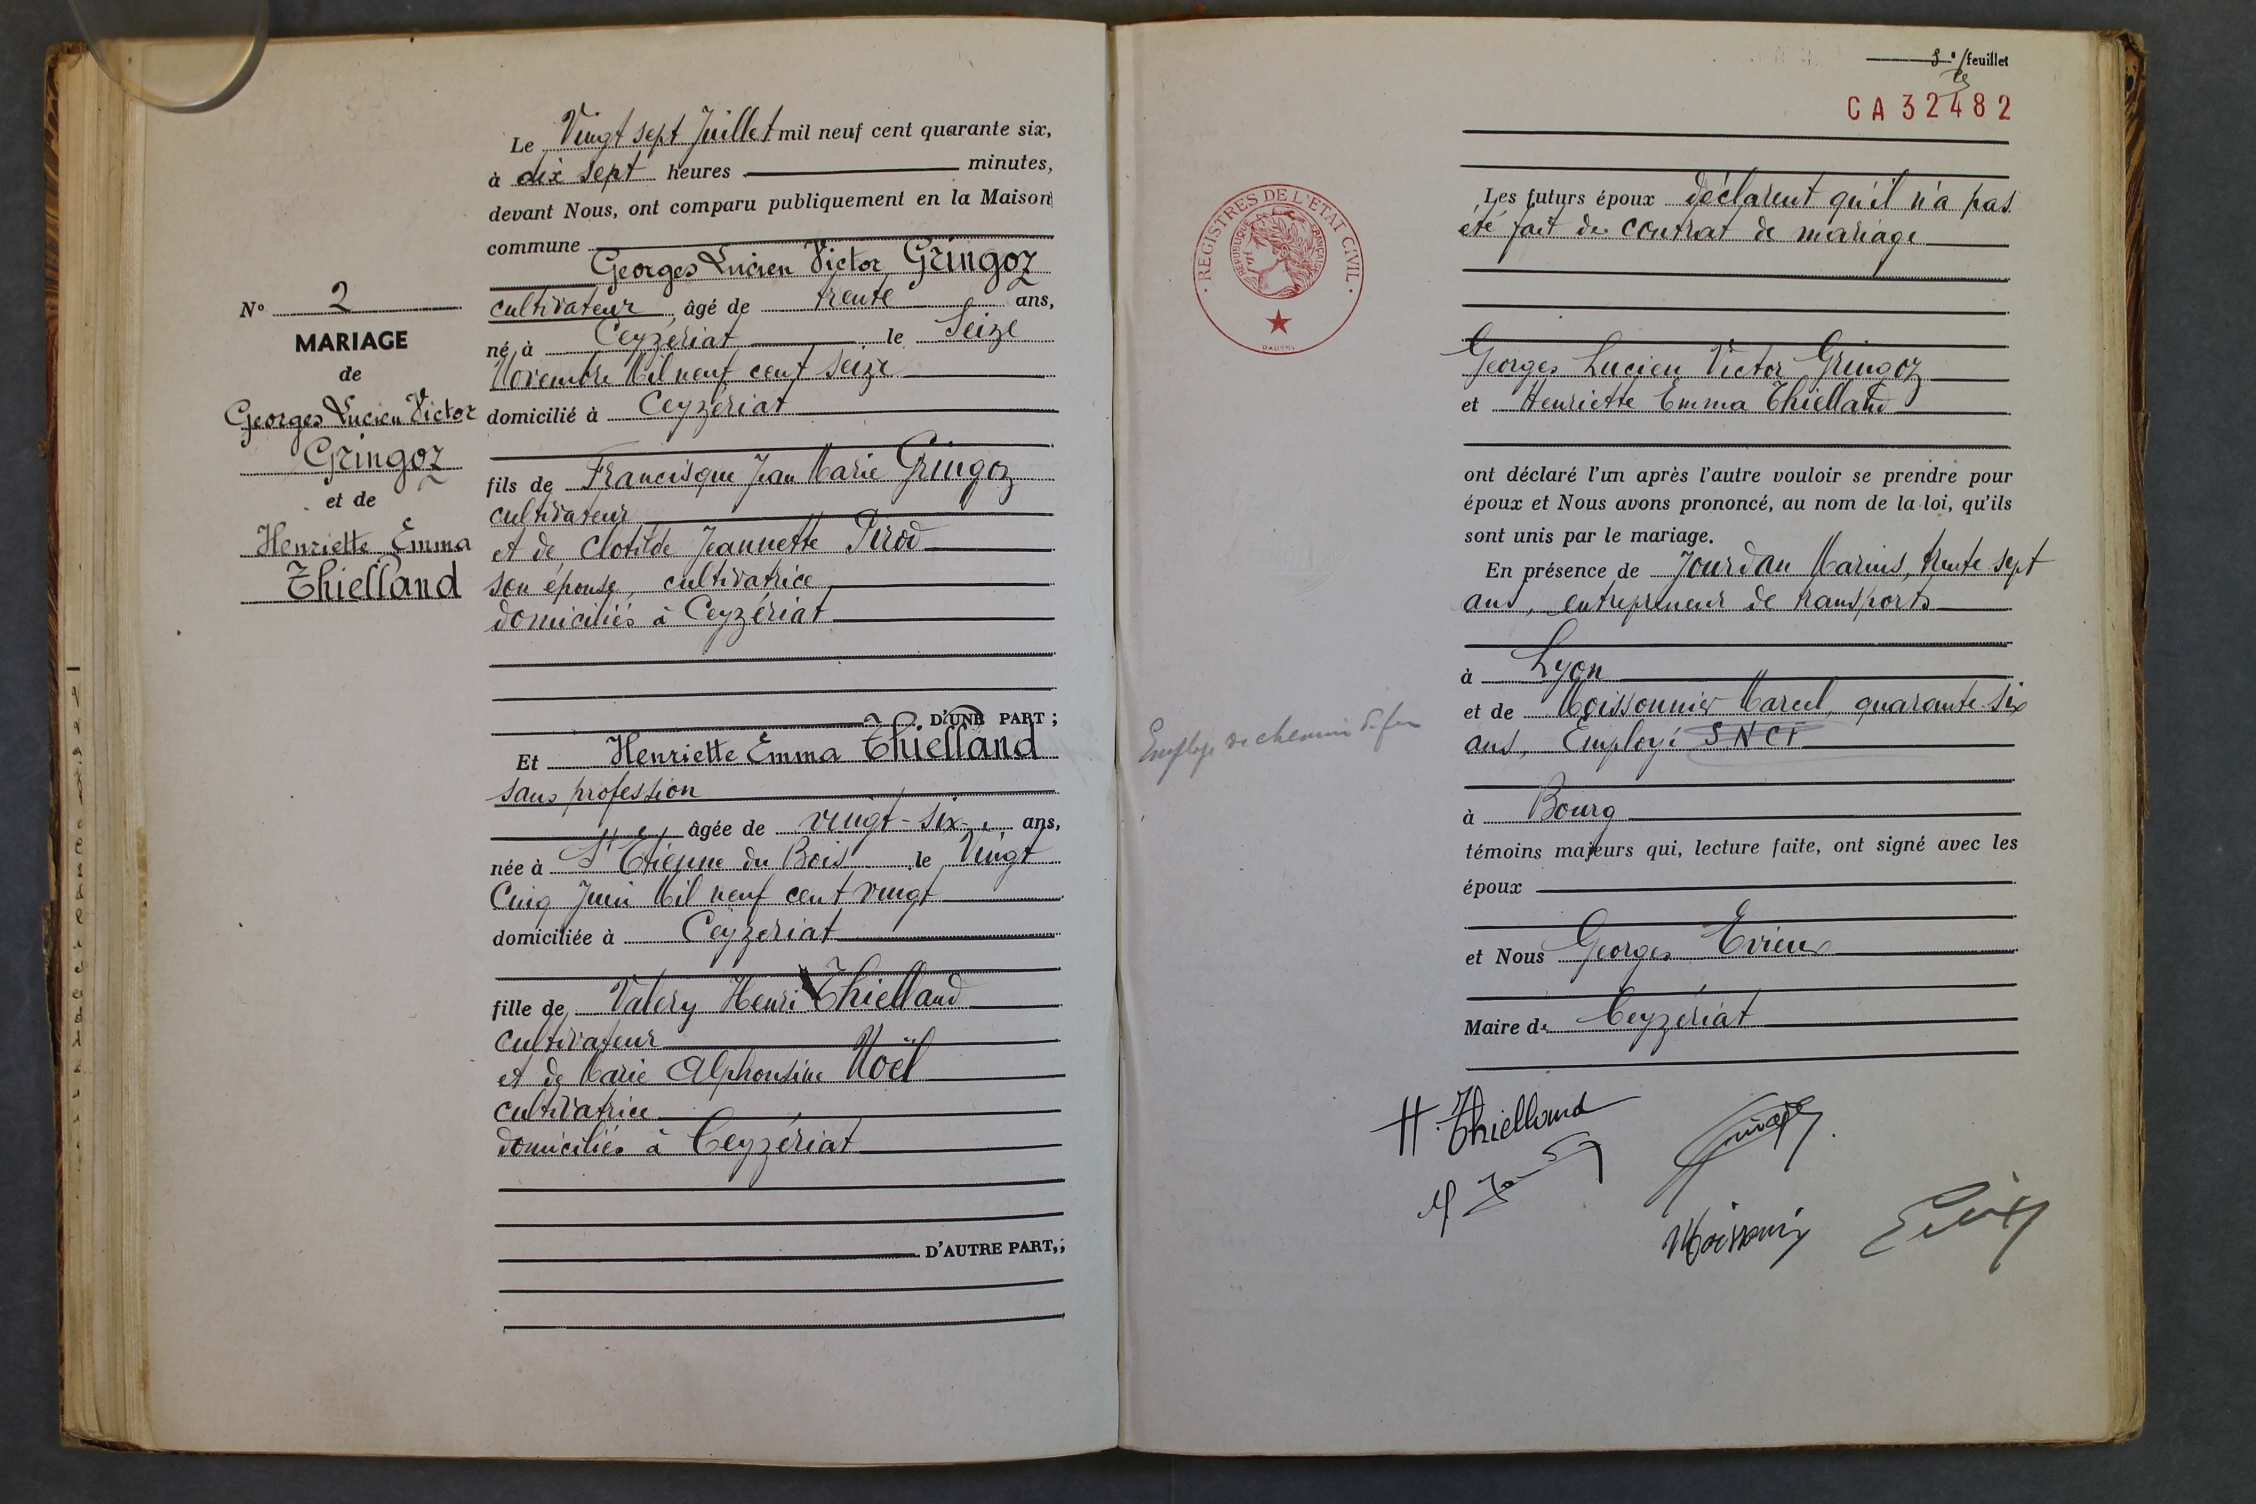 Le Vingt sept Juillet mil neuf cent quarante six,
à dix sept heures minutes,
devant Nous, ont comparu publiquement en la Maison
commune
Georges Lucien Victor Gringoz
cultivateur, âgé de trente ans,
né à Ceyzériat le Seize
Novembre Mil neuf cent seize
domicilié à Ceyzériat
fils de Francisque Jean Marie Gringoz
cultivateur
et de Clotilde Jeannette Perod
son épouse, cultivatrice
domiciliés à Ceyzériat
D'UNE PART ;
Et Henriette Emma Thielland
sans profession
âgée de vingt-six ans,
née à St Etienne du Bois le Vingt
Cinq Juin Mil neuf cent vingt
domiciliée à Ceyzeriat
fille de Valery Henri Thielland
cultivateur
et de Marie Alphonsine Noël
cultivatrice
domiciliés à Ceyzériat
D'AUTRE PART,;
N° 2
MARIAGE
de
Georges Lucien Victor
Gringoz
et de
Henriette Emma
Thielland
feuillet
CA 32482
REGISTRES DE L'ETAT CIVIL
REPUBLIQUE FRANÇAISE
Les futurs époux déclarent qu'il n'a pas
été fait de contrat de mariage
Georges Lucien Victor Gringoz
et Henriette Emma Thielland
ont déclaré l'un après l'autre vouloir se prendre pour
époux et Nous avons prononcé, au nom de la loi, qu'ils
sont unis par le mariage.
En présence de Jourdan Marius, trente sept
ans, entrepreneur de transports
à Lyon
et de Moissonnier Marcel, quarante six
ans, Employé SNCF
Employé de chemin de fer
à Bourg
témoins majeurs qui, lecture faite, ont signé avec les
époux
et Nous Georges Evieux
Maire de Ceyzériat
H. Thielland